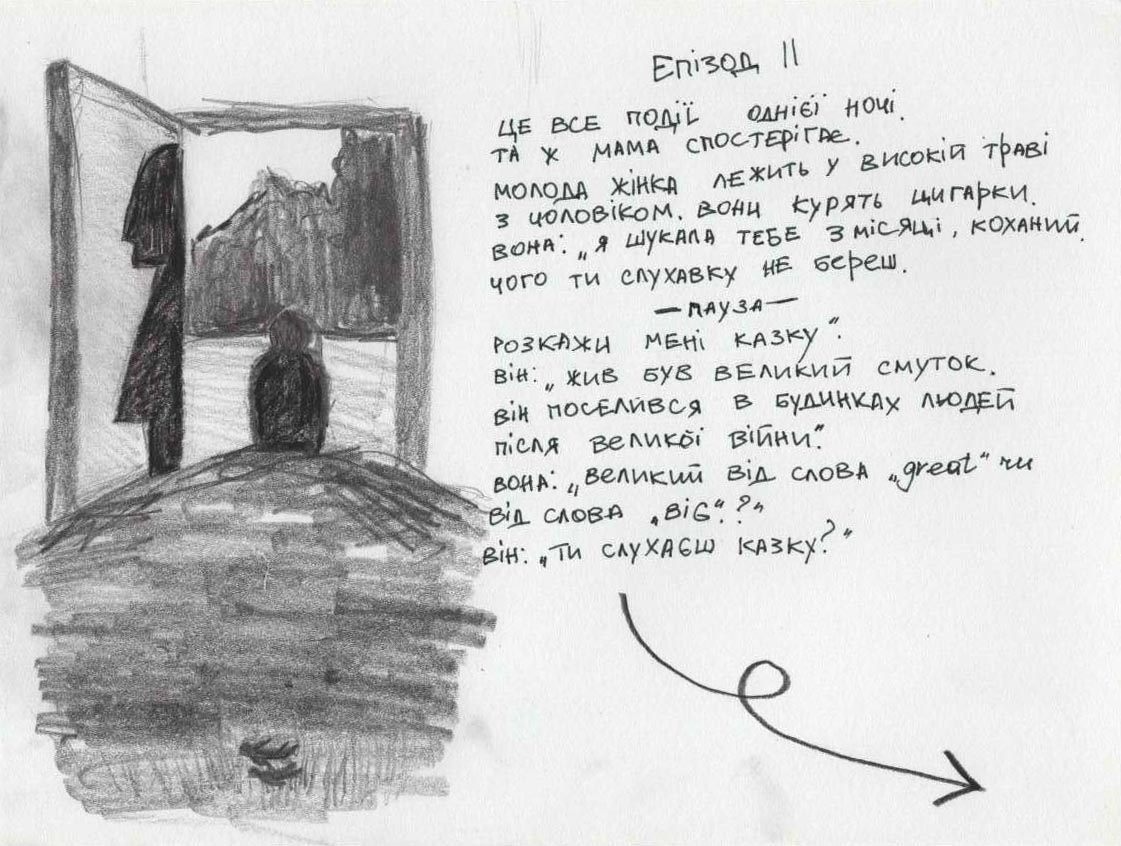 Епізод II
ЦЕ ВСЕ ПОДІЇ ОДНІЄЇ НОЧІ.
ТА Ж МАМА СПОСТЕРІГАЄ.
МОЛОДА ЖІНКА ЛЕЖИТЬ У ВИСОКІЙ ТРАВІ
З ЧОЛОВІКОМ. ВОНИ КУРЯТЬ ЦИГАРКИ.
ВОНА: „Я ШУКАЛА ТЕБЕ 3 МІСЯЦІ, КОХАНИЙ.
ЧОГО ТИ СЛУХАВКУ НЕ БЕРЕШ.
— ПАУЗА —
РОЗКАЖИ МЕНІ КАЗКУ".
ВІН: „ЖИВ БУВ ВЕЛИКИЙ СМУТОК.
ВІН ПОСЕЛИВСЯ В БУДИНКАХ ЛЮДЕЙ
ПІСЛЯ ВЕЛИКОЇ ВІЙНИ".
ВОНА: „ВЕЛИКИЙ ВІД СЛОВА „great" чи
ВІД СЛОВА „BIG"?"
ВІН: „ТИ СЛУХАЄШ КАЗКУ?"